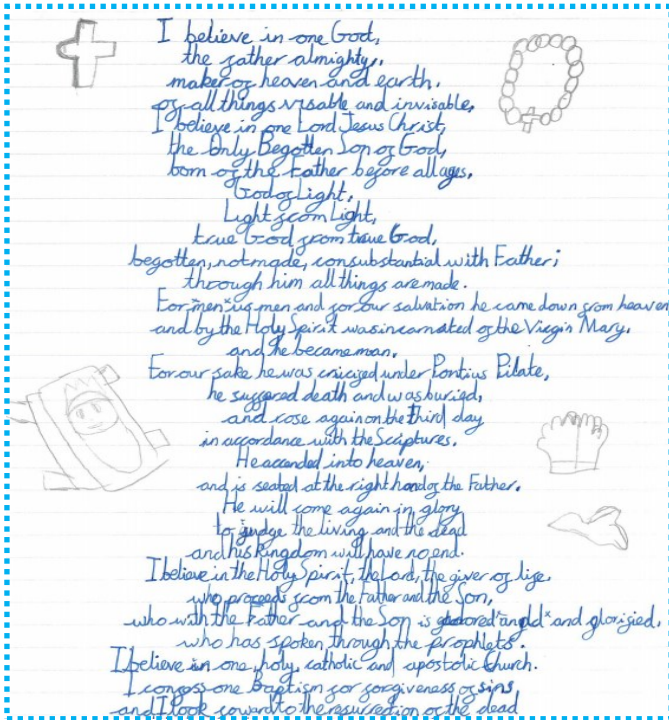 I believe in one God,
the father almighty,
maker of heaven and earth,
of all things visable and invisable,
I believe in one Lord Jesus Christ,
the Only Begotten Son of God,
born of the Father before all ages,
God of Light,
Light from Light,
true God from true God,
begotten, not made, consubstantial with Father;
through him all things are made.
For "men" us men and for our salvation he came down from heaven
and by the Holy Spirit was incarnated of the Virgin Mary,
and he became man.
For our sake he was crucified under Pontius Pilate,
he suffered death and was buried,
and rose again on the third day
in accordance with the Scriptures.
He accended into heaven,
and is seated at the right hand of the Father.
He will come again in glory
to judge the living and the dead
and his kingdom will have no end.
I believe in the Holy Spirit, the Lord, the giver of life,
who proceeds from the Father and the Son,
who with the Father and the Son is and glorified,
who has spoken through the prophlets.
I believe in one, holy, catholic and apostolic Church.
I confess one Baptism for forgiveness of sins
and I look foward to the resurrection of the dead